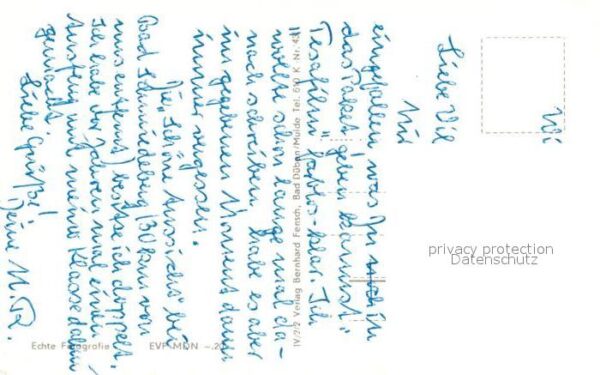 Liebe
Mir
eingefallen, was Du noch in
das Paket geben kannst:
"Tesafilm", farblos-klar. Ich
wollte schon lange mal da-
nach schreiben, habe es aber
im gegebenen Moment dann
immer vergessen.
Die "Schöne Aussicht" bei
Bad Schmiedeberg (30 km von
uns entfernt) besitze ich doppelt.
Ich habe vor Jahren mal einen
Ausflug mit meiner Klasse dahin
gemacht.
Liebe Grüße!
Deine M. R.
IV/2/2 Verlag Bernhard Fensch, Bad Düben/Mulde Tel. 690 K Nr.
Echte Fotografie EVP MDN -.20
privacy protection
Datenschutz